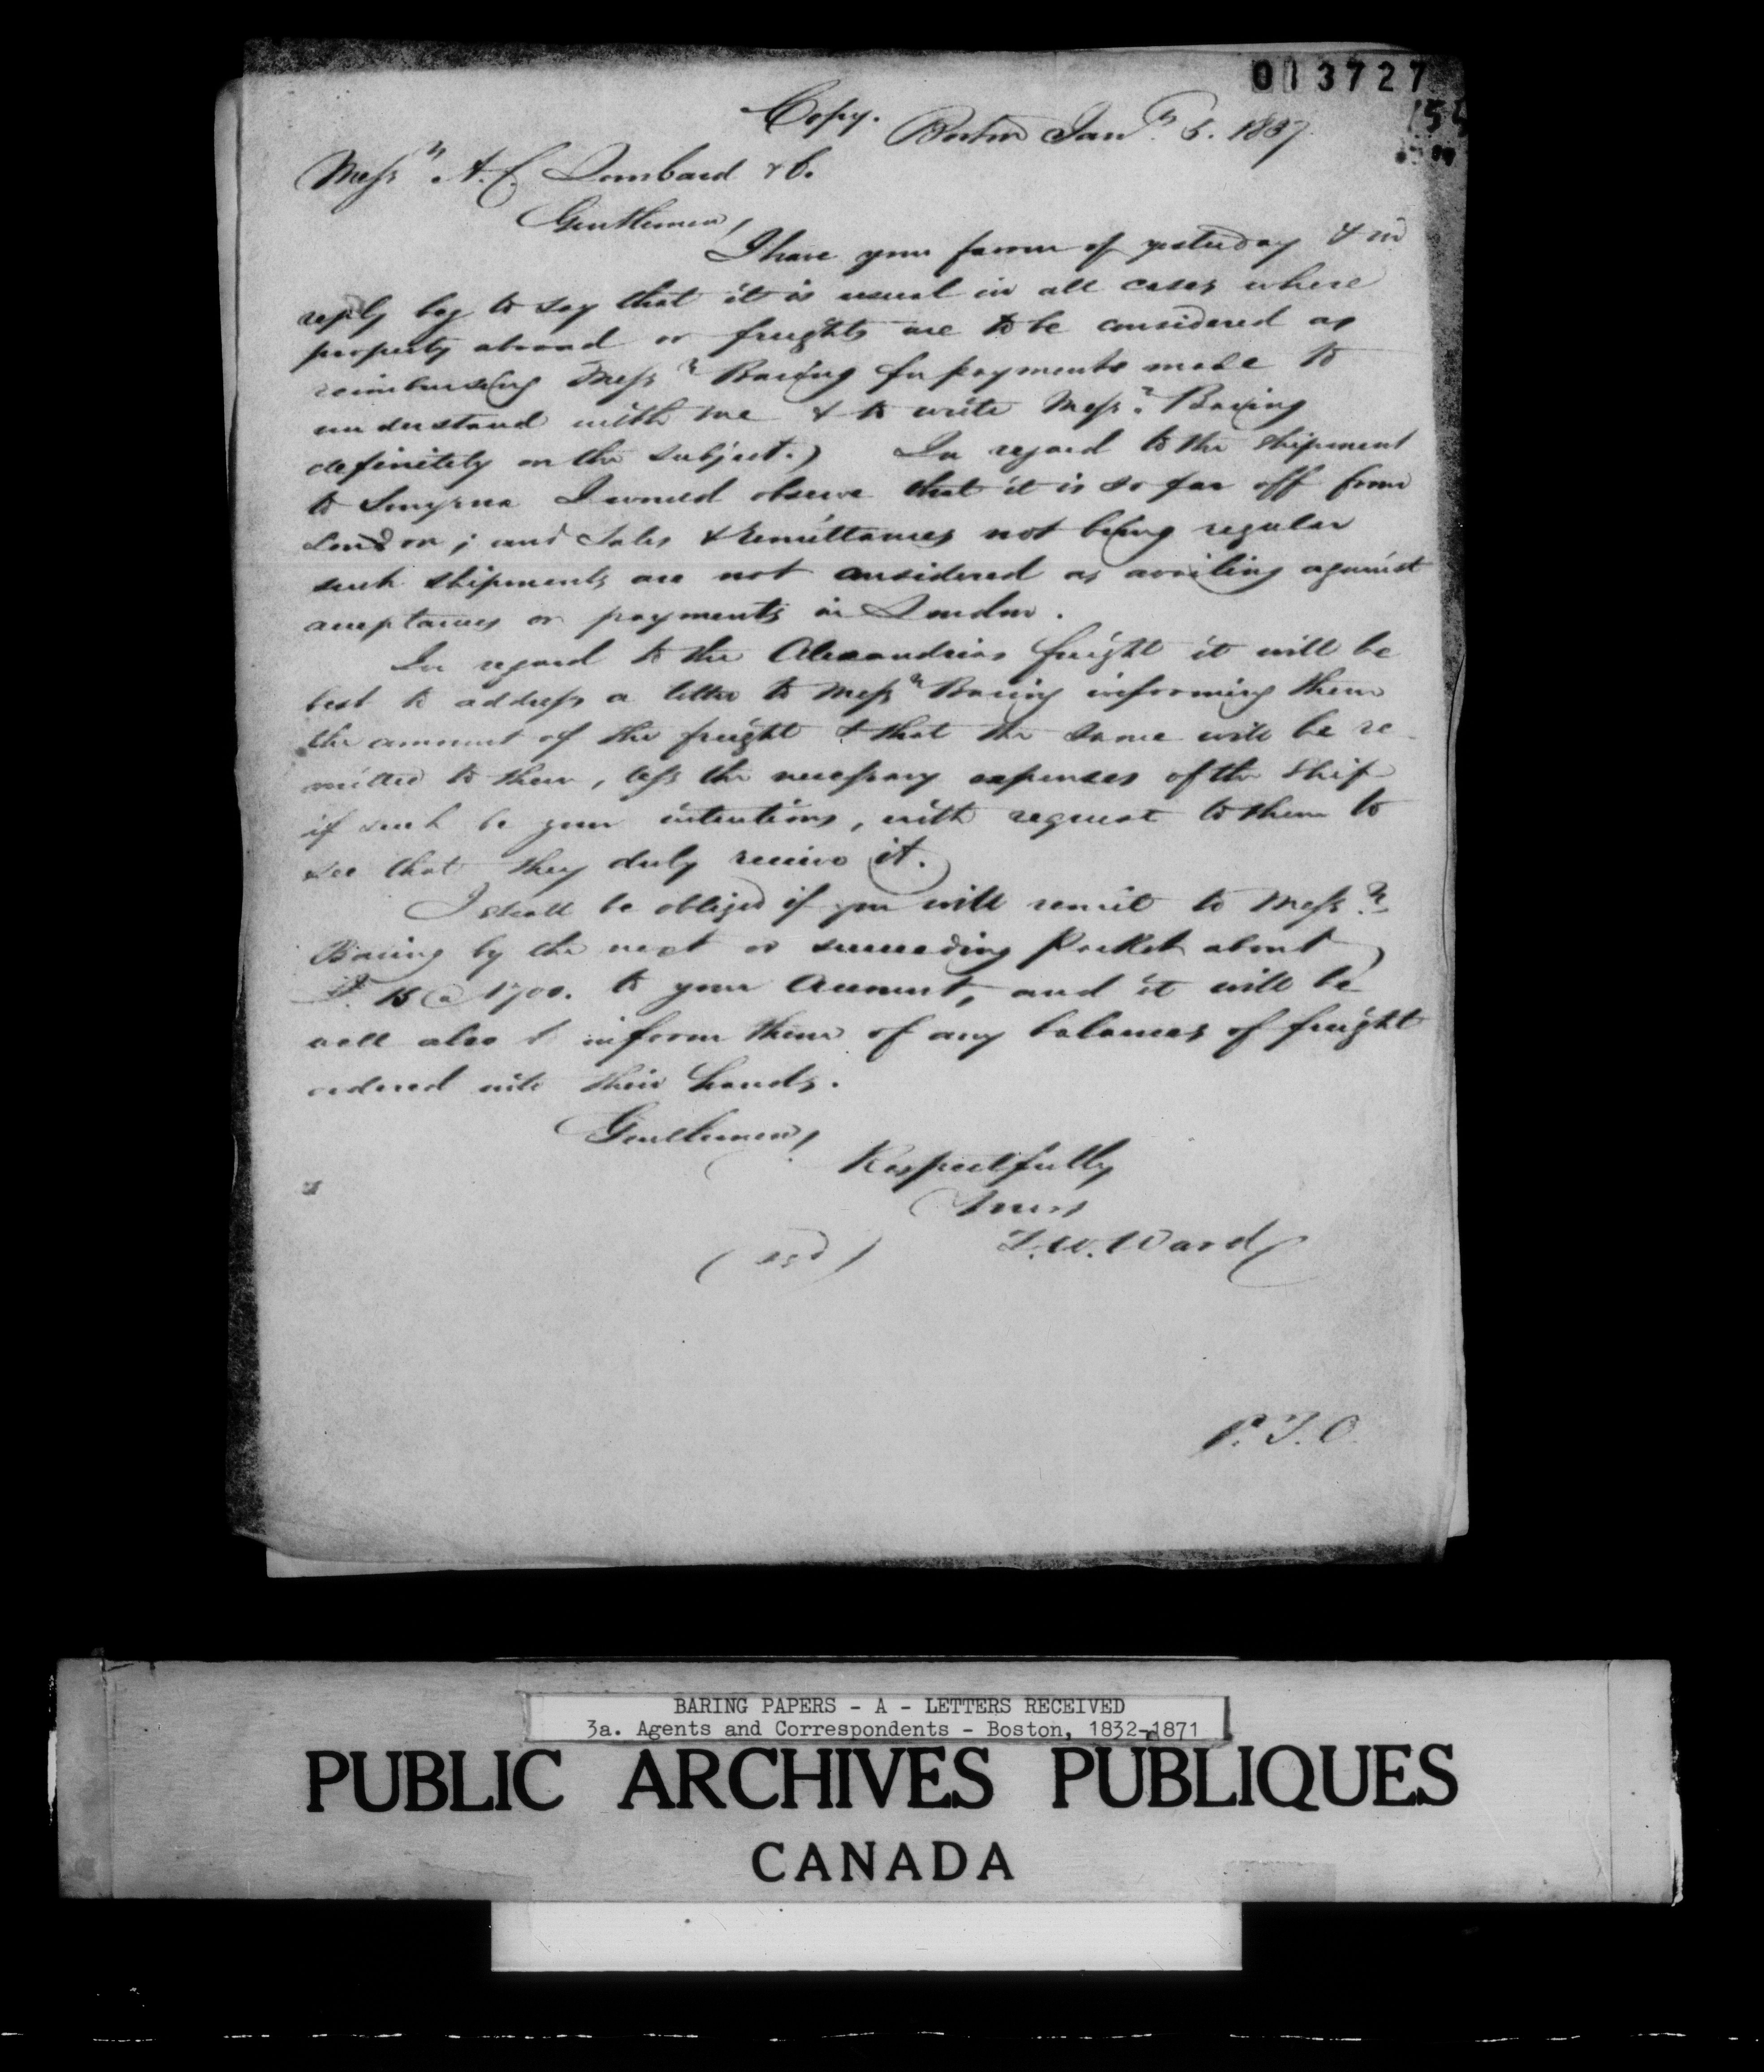 013727
Copy. Boston Jany. 5. 1837
Messrs A. C. Lombard & Co
Gentlemen,
I have your favour of yesterday & in
reply beg to say that it is usual in all cases where
property abroad or freights are to be considered as
reimbursing Messrs Baring for payments made to
understand with me & to write Messrs Baring
definitely on the subject. In regard to the shipment
to Smyrna I would observe that it is so far off from
London; and Sales & remittances not being regular
such shipments are not considered as availing against
acceptances or payments in London.
In regard to the Alexandrias freight it will be
best to address a letter to Messrs Baring informing them
the amount of the freight & that the same will be re-
mitted to them, less the necessary expenses of the ship
if such be your intentions, with request to them to
see that they duly receive it.
I shall be obliged if you will remit to Messrs
Baring by the next or succeeding Packet about
£ 15 @ 1700. to your Account, and it will be
well also to inform them of any balances of freight
ordered into their hands.
Gentlemen,
Respectfully
Yours
(sgd) T. W. Ward
P.T.O.
BARING PAPERS - A - LETTERS RECEIVED
3a. Agents and Correspondents - Boston, 1832-1871
PUBLIC ARCHIVES PUBLIQUES
CANADA